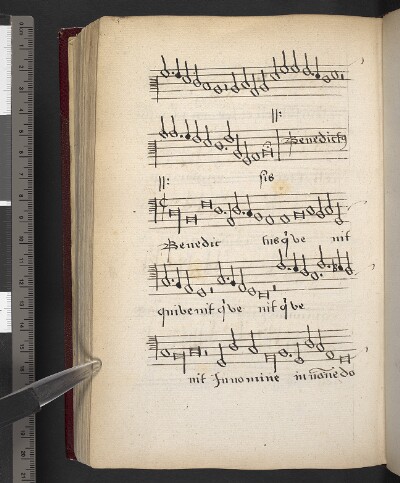 Benedictꝰ
sis
Benedic tusq̇ ve nit
qui venit q̇ ve nit q̇ ve
nit In nomine in noīne do